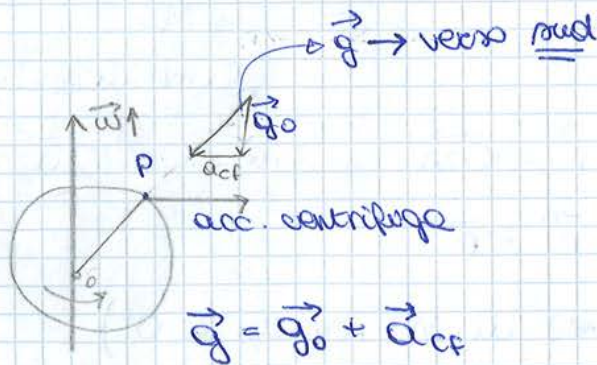 g⃗ → verso sud
ω⃗
g⃗₀
P
a_cf
acc. centrifuga
o
g⃗ = g⃗₀ + a⃗_cf